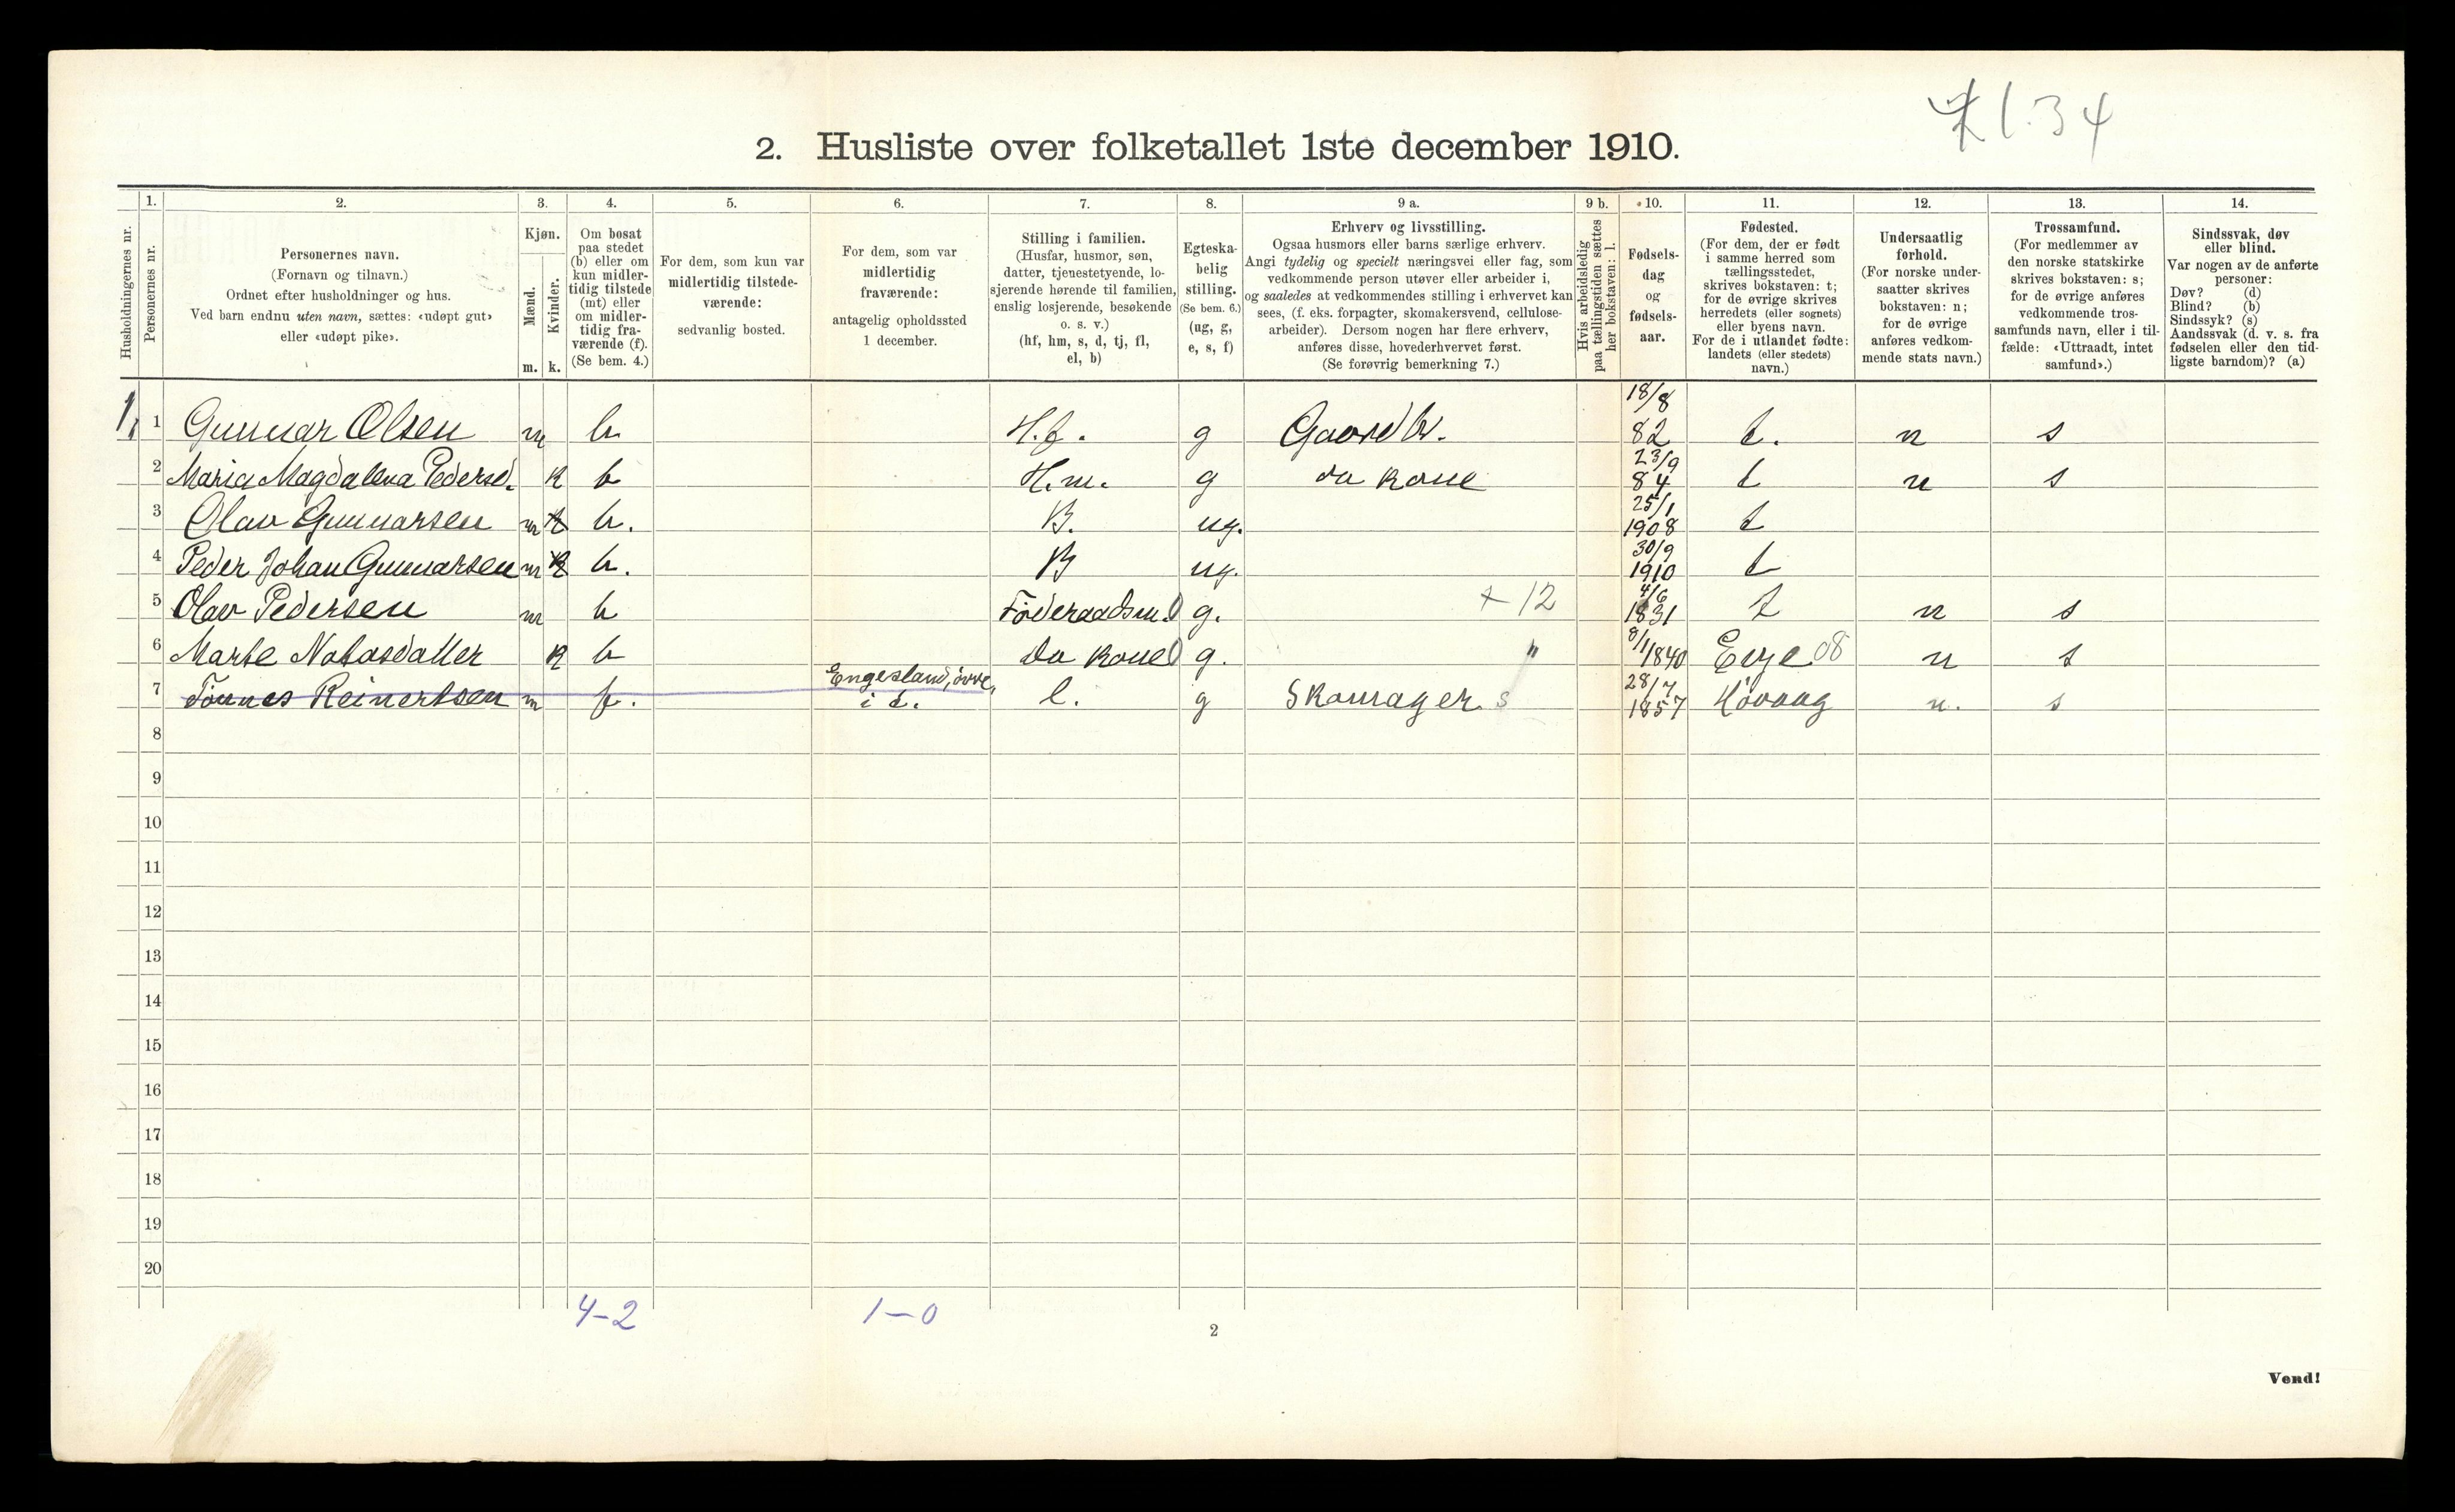 71.34
2. Husliste over folketallet 1ste december 1910.
Husholdningernes nr.
1. Personernes nr.
2. Personernes navn.
(Fornavn og tilnavn.)
Ordnet efter husholdninger og hus.
Ved barn endnu uten navn, sættes: «udøpt gut»
eller «udøpt pike».
3. Kjøn.
Mænd. m.
Kvinder. k.
4. Om bosat
paa stedet
(b) eller om
kun midler-
tidig tilstede
(mt) eller
om midler-
tidig fra-
værende (f).
(Se bem. 4.)
5. For dem, som kun var
midlertidig tilstede-
værende:
sedvanlig bosted.
6. For dem, som var
midlertidig
fraværende:
antagelig opholdssted
1 december.
7. Stilling i familien.
(Husfar, husmor, søn,
datter, tjenestetyende, lo-
sjerende hørende til familien,
enslig losjerende, besøkende
o. s. v.)
(hf, hm, s, d, tj, fl,
el, b)
8. Egteska-
belig
stilling.
(Se bem. 6.)
(ug, g,
e, s, f)
9 a. Erhverv og livsstilling.
Ogsaa husmors eller barns særlige erhverv.
Angi tydelig og specielt næringsvei eller fag, som
vedkommende person utøver eller arbeider i,
og saaledes at vedkommendes stilling i erhvervet kan
sees, (f. eks. forpagter, skomakersvend, cellulose-
arbeider). Dersom nogen har flere erhverv,
anføres disse, hovederhvervet først.
(Se forøvrig bemerkning 7.)
9 b. Hvis arbeidsledig
paa tællingstiden sættes
her bokstaven: l.
10. Fødsels-
dag
og
fødsels-
aar.
11. Fødested.
(For dem, der er født
i samme herred som
tællingsstedet,
skrives bokstaven: t;
for de øvrige skrives
herredets (eller sognets)
eller byens navn.
For de i utlandet fødte:
landets (eller stedets)
navn.)
12. Undersaatlig
forhold.
(For norske under-
saatter skrives
bokstaven: n;
for de øvrige
anføres vedkom-
mende stats navn.)
13. Trossamfund.
(For medlemmer av
den norske statskirke
skrives bokstaven: s;
for de øvrige anføres
vedkommende tros-
samfunds navn, eller i til-
fælde: «Uttraadt, intet
samfund».)
14. Sindssvak, døv
eller blind.
Var nogen av de anførte
personer:
Døv? (d)
Blind? (b)
Sindssyk? (s)
Aandssvak (d. v. s. fra
fødselen eller den tid-
ligste barndom)? (a)
1, 1 Gunnar Olsen m b H.f. g Gaardbr. 18/8 82 t. n s
2 Maria Magdalena Pedersd. k b H.m. g da kone 23/9 84 t n s
3 Olav Gunnarsen m k b. B. ug. 25/1 1908 t
4 Peder Johan Gunnarsen m k b. B ug. 30/9 1910 t
5 Olav Pedersen m b Föderaadsm. g. + 12 4/6 1831 t n s
6 Marte Notasdatter k b da kone g. " 8/1 1840 Evje 08 n s
7 Tönnes Reinertsen m f. Engesland, övre, i t. l. g Skomager s 28/7 1857 Hövaag n. s
8
9
10
11
12
13
14
15
16
17
18
19
20
4-2 1-0
2
Vend!